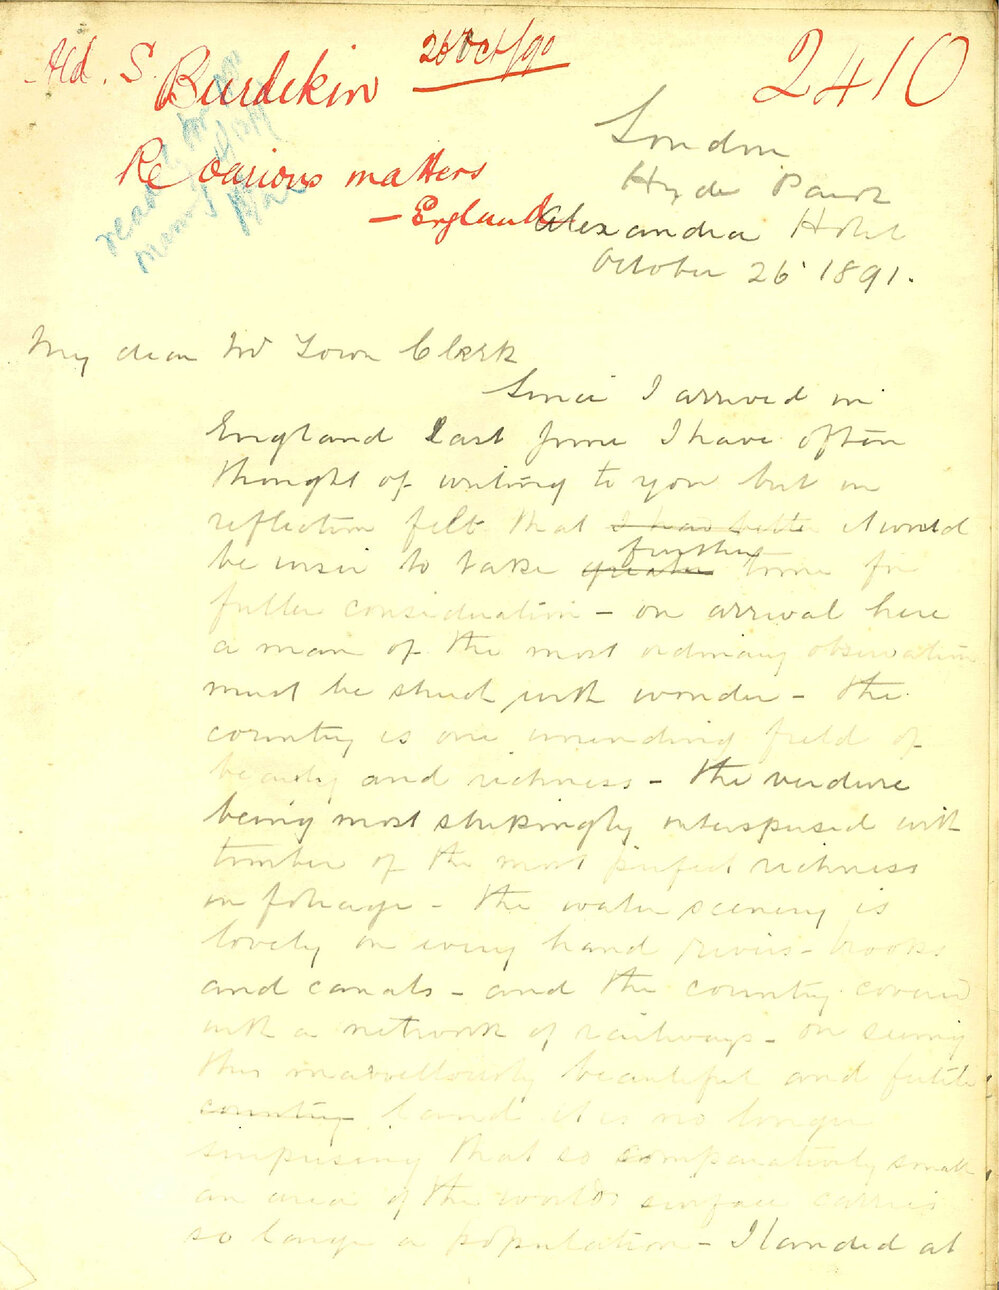 Ald. S. Burdekin
26 Oct/90
2410
Re various matters
- England
read
London
Hyde Park
Alexandra Hotel
October 26 1891.
My dear Mr Town Clerk
Since I arrived in
England last June I have often
thought of writing to you but on
reflection felt that I had better it would
be wiser to take greater further time for
fuller consideration - on arrival here
a man of the most ordinary observation
must be struck with wonder - the
country is one unending field of
beauty and richness - the verdure
being most strikingly interspersed with
timber of the most perfect richness
in foliage - the water scenery is
lovely on every hand rivers - brooks
and canals - and the country covered
with a network of railways - on seeing
this marvellously beautiful and fertile
country land it is no longer
surprising that so comparatively small
an area of the worlds surface carries
so large a population - I landed at